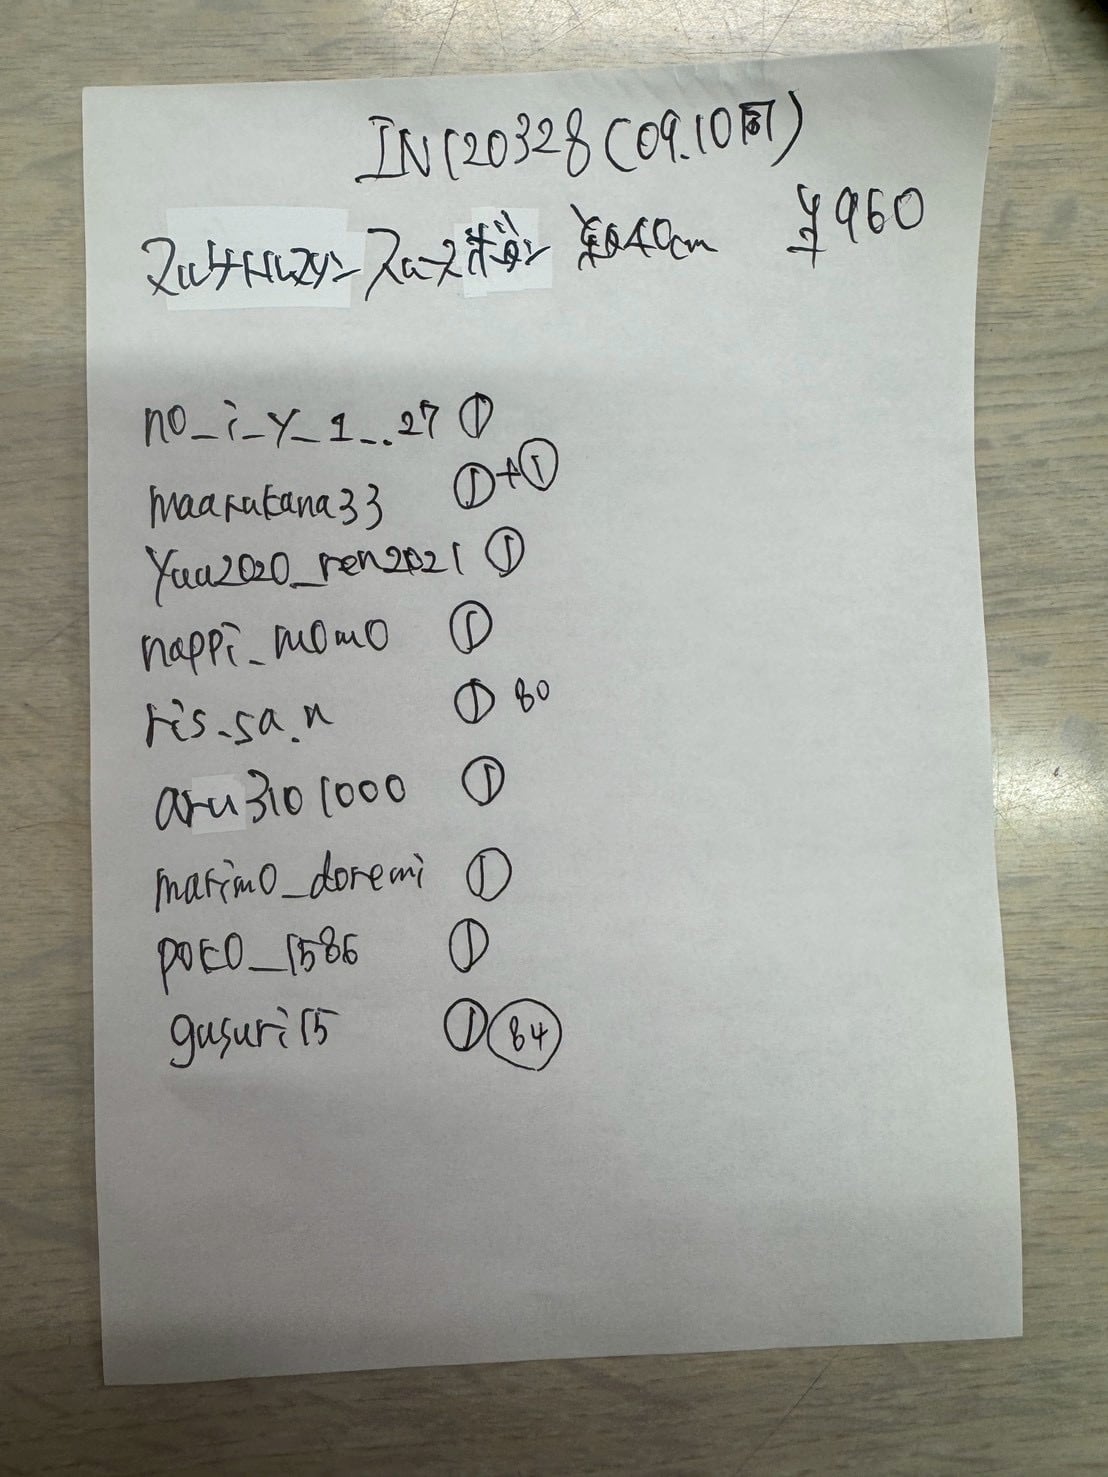 IN120328(09.10同)
約40cm ¥960
no_i_y_1_..27 ①
maarukana33 ①+①
yuu2020_ren2021 ①
nappi_momo ①
ris_sa.n ① 80
aru3101000 ①
marimo_doremi ①
poco_1586 ①
gusuri15 ① 84